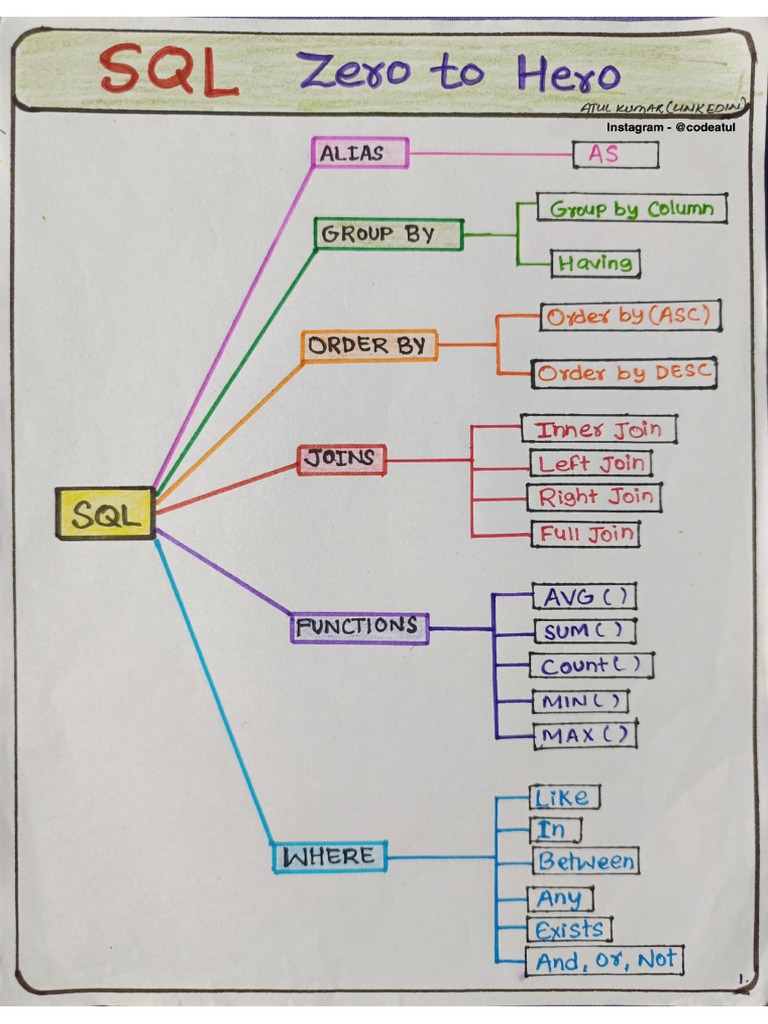 SQL Zero to Hero
ATUL KUMAR (LINKEDIN)
Instagram - @codeatul
ALIAS
AS
GROUP BY
Group by Column
Having
ORDER BY
Order by (ASC)
Order by DESC
JOINS
Inner Join
Left Join
Right Join
Full Join
SQL
FUNCTIONS
AVG ( )
SUM ( )
Count ( )
MIN ( )
MAX ( )
WHERE
Like
In
Between
Any
Exists
And, Or, Not
1.